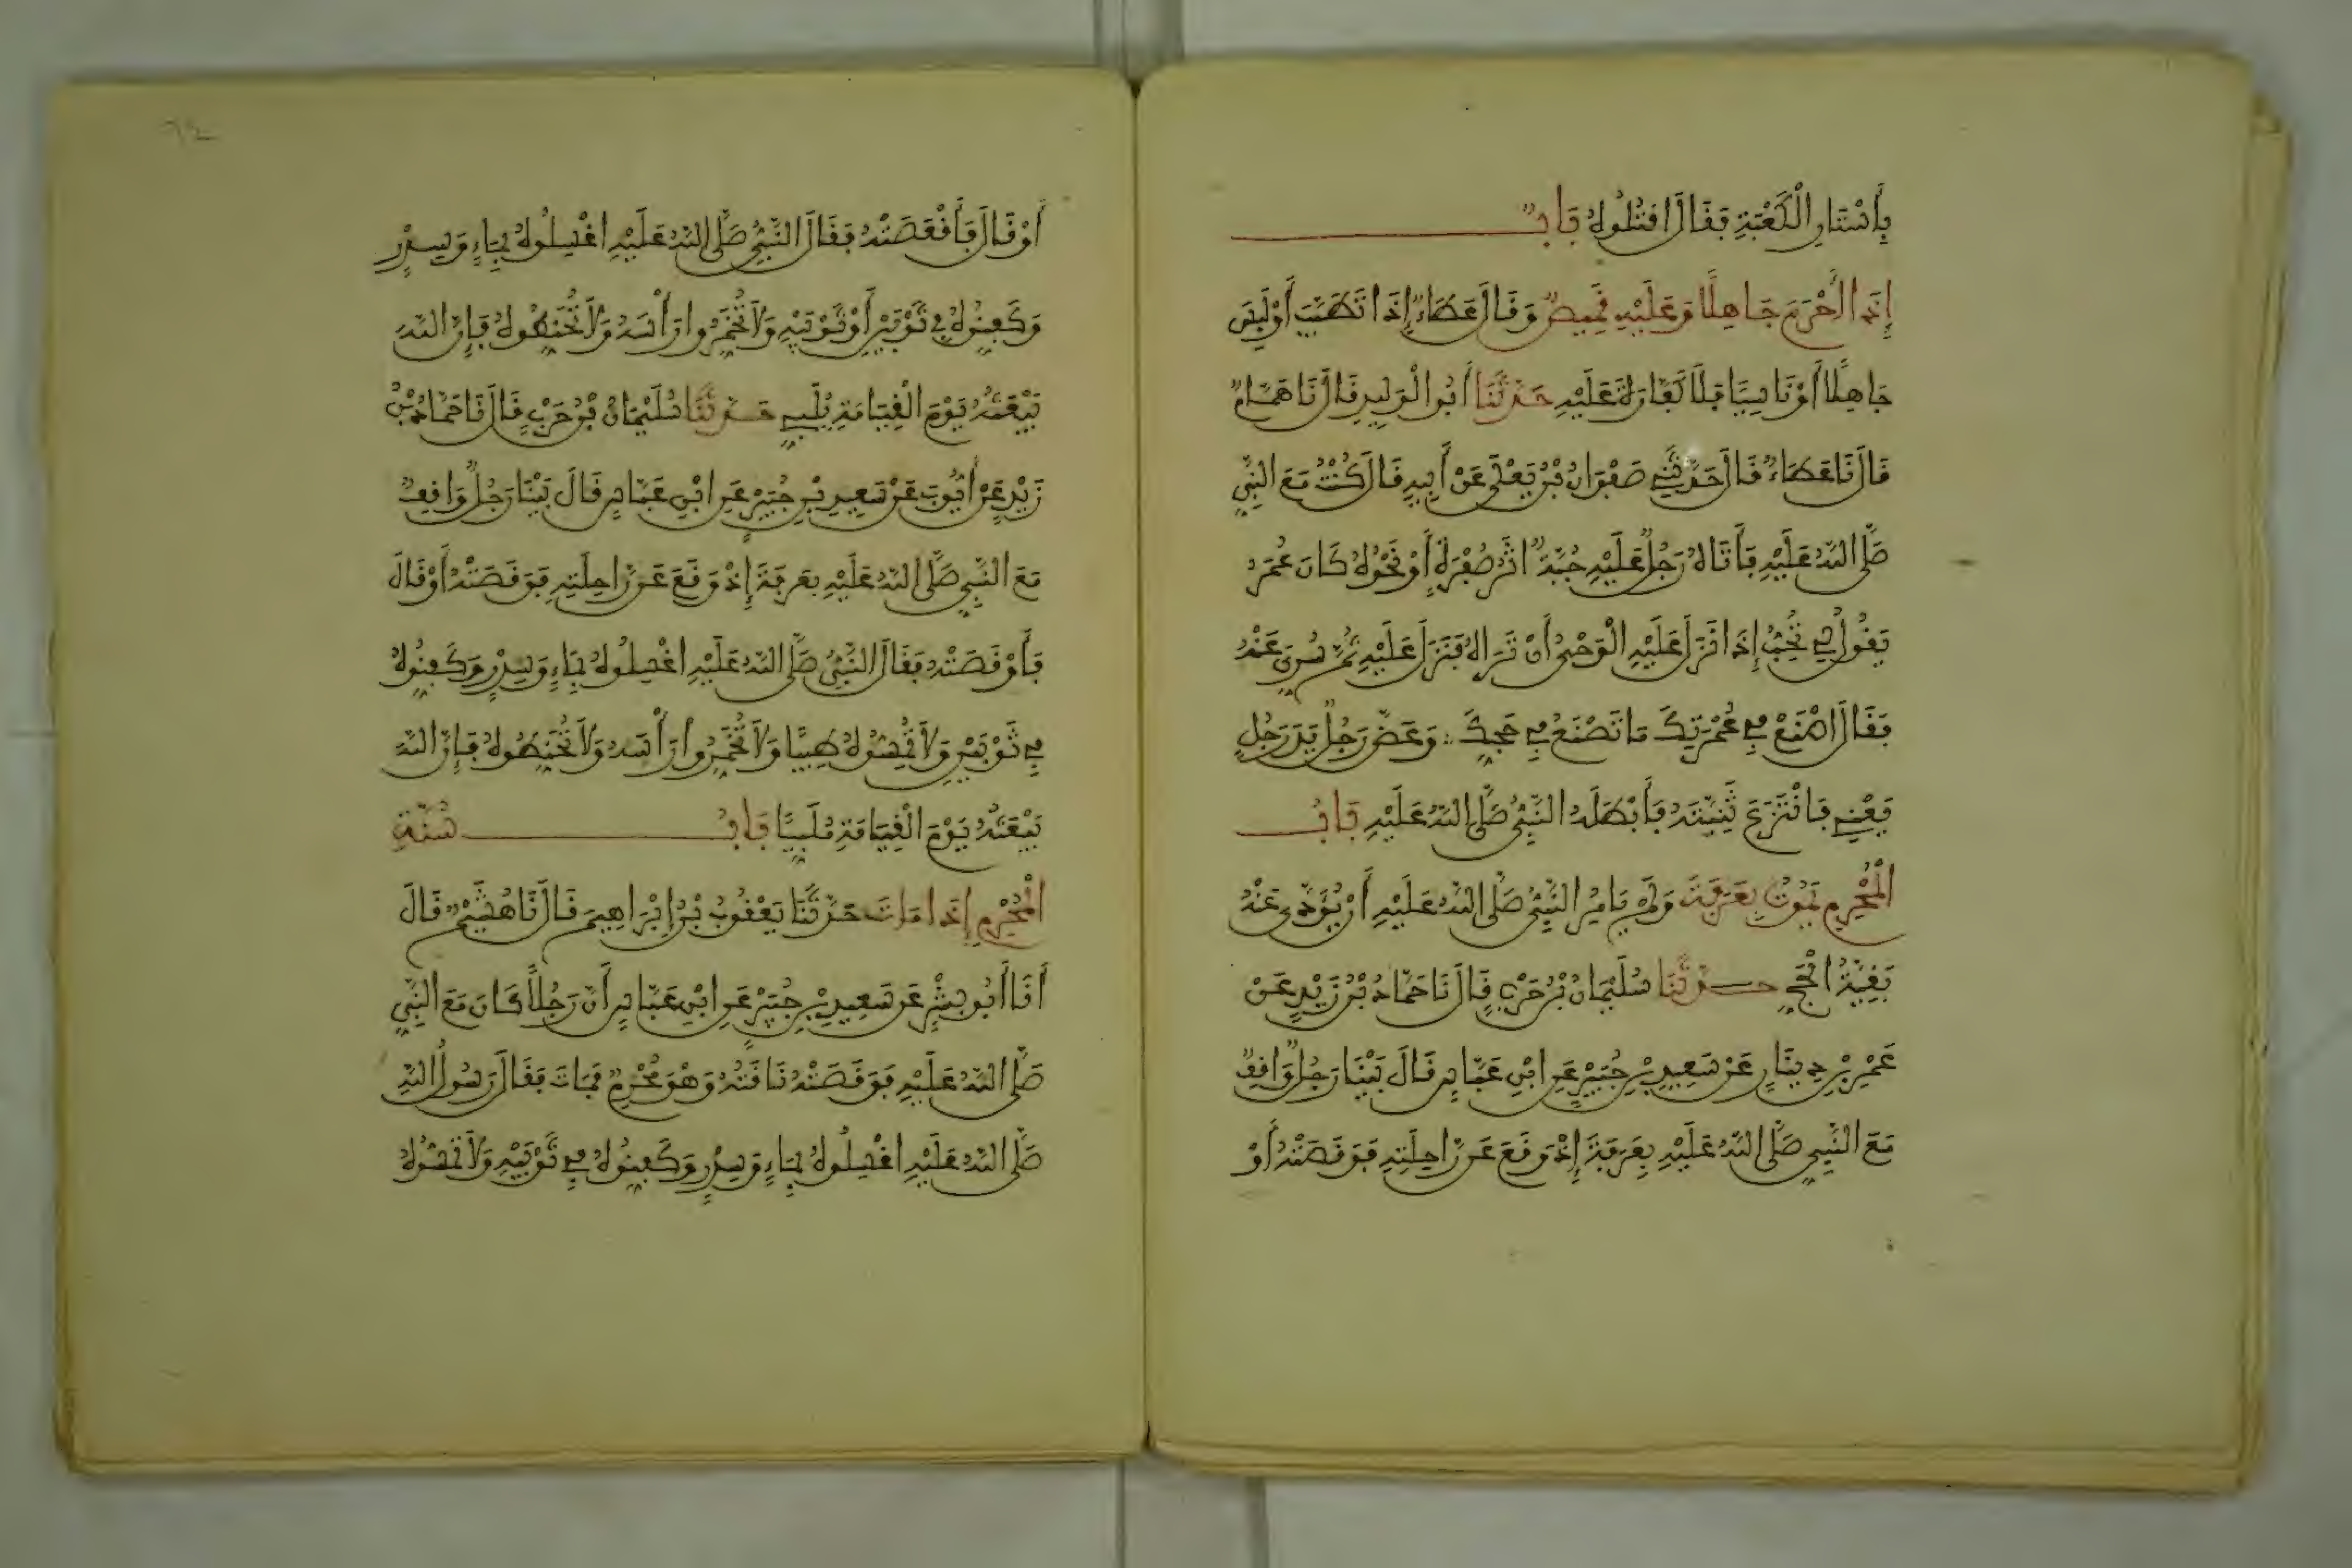 بِأَسْتَارِ الْكَعْبَةِ فَقَالَ اقْتُلُوهُ بَابٌ
إِذَا أَحْرَمَ جَاهِلًا وَعَلَيْهِ قَمِيصٌ وَقَالَ عَطَاءٌ إِذَا تَطَيَّبَ أَوْ لَبِسَ
جَاهِلًا أَوْ نَاسِيًا فَلَا كَفَّارَةَ عَلَيْهِ حَدَّثَنَا أَبُو الْوَلِيدِ قَالَ نَا هَمَّامٌ
قَالَ نَا عَطَاءٌ قَالَ حَدَّثَنِي صَفْوَانُ بْنُ يَعْلَى عَنْ أَبِيهِ قَالَ كُنْتُ مَعَ النَّبِيِّ
صَلَّى اللَّهُ عَلَيْهِ فَأَتَاهُ رَجُلٌ عَلَيْهِ جُبَّةٌ أَثَرُ صُفْرَةٍ أَوْ نَحْوُهُ كَانَ عُمَرُ
يَقُولُ لِي تُحِبُّ إِذَا نَزَلَ عَلَيْهِ الْوَحْيُ أَنْ تَرَاهُ فَنَزَلَ عَلَيْهِ ثُمَّ سُرِّيَ عَنْهُ
فَقَالَ اصْنَعْ فِي عُمْرَتِكَ مَا تَصْنَعُ فِي حَجِّكَ وَعَضَّ رَجُلٌ يَدَ رَجُلٍ
يَعْنِي فَانْتَزَعَ ثَنِيَّتَهُ فَأَبْطَلَهُ النَّبِيُّ صَلَّى اللَّهُ عَلَيْهِ بَابُ
الْمُحْرِمِ يَمُوتُ بِعَرَفَةَ وَلَمْ يَأْمُرِ النَّبِيُّ صَلَّى اللَّهُ عَلَيْهِ أَنْ يُؤَدَّى عَنْهُ
بَقِيَّةُ الْحَجِّ حَدَّثَنَا سُلَيْمَانُ بْنُ حَرْبٍ قَالَ نَا حَمَّادُ بْنُ زَيْدٍ عَنْ
عَمْرِو بْنِ دِينَارٍ عَنْ سَعِيدِ بْنِ جُبَيْرٍ عَنِ ابْنِ عَبَّاسٍ قَالَ بَيْنَا رَجُلٌ وَاقِفٌ
مَعَ النَّبِيِّ صَلَّى اللَّهُ عَلَيْهِ بِعَرَفَةَ إِذْ وَقَعَ عَنْ رَاحِلَتِهِ فَوَقَصَتْهُ أَوْ
أَوْ قَالَ فَأَقْعَصَتْهُ فَقَالَ النَّبِيُّ صَلَّى اللَّهُ عَلَيْهِ اغْسِلُوهُ بِمَاءٍ وَسِدْرٍ
وَكَفِّنُوهُ فِي ثَوْبَيْنِ أَوْ ثَوْبَيْهِ وَلَا تُخَمِّرُوا رَأْسَهُ وَلَا تُحَنِّطُوهُ فَإِنَّ اللَّهَ
يَبْعَثُهُ يَوْمَ الْقِيَامَةِ يُلَبِّي حَدَّثَنَا سُلَيْمَانُ بْنُ حَرْبٍ قَالَ نَا حَمَّادُ بْنُ
زَيْدٍ عَنْ أَيُّوبَ عَنْ سَعِيدِ بْنِ جُبَيْرٍ عَنِ ابْنِ عَبَّاسٍ قَالَ بَيْنَا رَجُلٌ وَاقِفٌ
مَعَ النَّبِيِّ صَلَّى اللَّهُ عَلَيْهِ بِعَرَفَةَ إِذْ وَقَعَ عَنْ رَاحِلَتِهِ فَوَقَصَتْهُ أَوْ قَالَ
فَأَوْقَصَتْهُ فَقَالَ النَّبِيُّ صَلَّى اللَّهُ عَلَيْهِ اغْسِلُوهُ بِمَاءٍ وَسِدْرٍ وَكَفِّنُوهُ
فِي ثَوْبَيْنِ وَلَا تُمِسُّوهُ طِيبًا وَلَا تُخَمِّرُوا رَأْسَهُ وَلَا تُحَنِّطُوهُ فَإِنَّ اللَّهَ
يَبْعَثُهُ يَوْمَ الْقِيَامَةِ مُلَبِّيًا بَابُ سُنَّةِ
الْمُحْرِمِ إِذَا مَاتَ حَدَّثَنَا يَعْقُوبُ بْنُ إِبْرَاهِيمَ قَالَ نَا هُشَيْمٌ قَالَ
أَنَا أَبُو بِشْرٍ عَنْ سَعِيدِ بْنِ جُبَيْرٍ عَنِ ابْنِ عَبَّاسٍ أَنَّ رَجُلًا كَانَ مَعَ النَّبِيِّ
صَلَّى اللَّهُ عَلَيْهِ فَوَقَصَتْهُ نَاقَتُهُ وَهْوَ مُحْرِمٌ فَمَاتَ فَقَالَ رَسُولُ اللَّهِ
صَلَّى اللَّهُ عَلَيْهِ اغْسِلُوهُ بِمَاءٍ وَسِدْرٍ وَكَفِّنُوهُ فِي ثَوْبَيْهِ وَلَا تَمَسُّوهُ